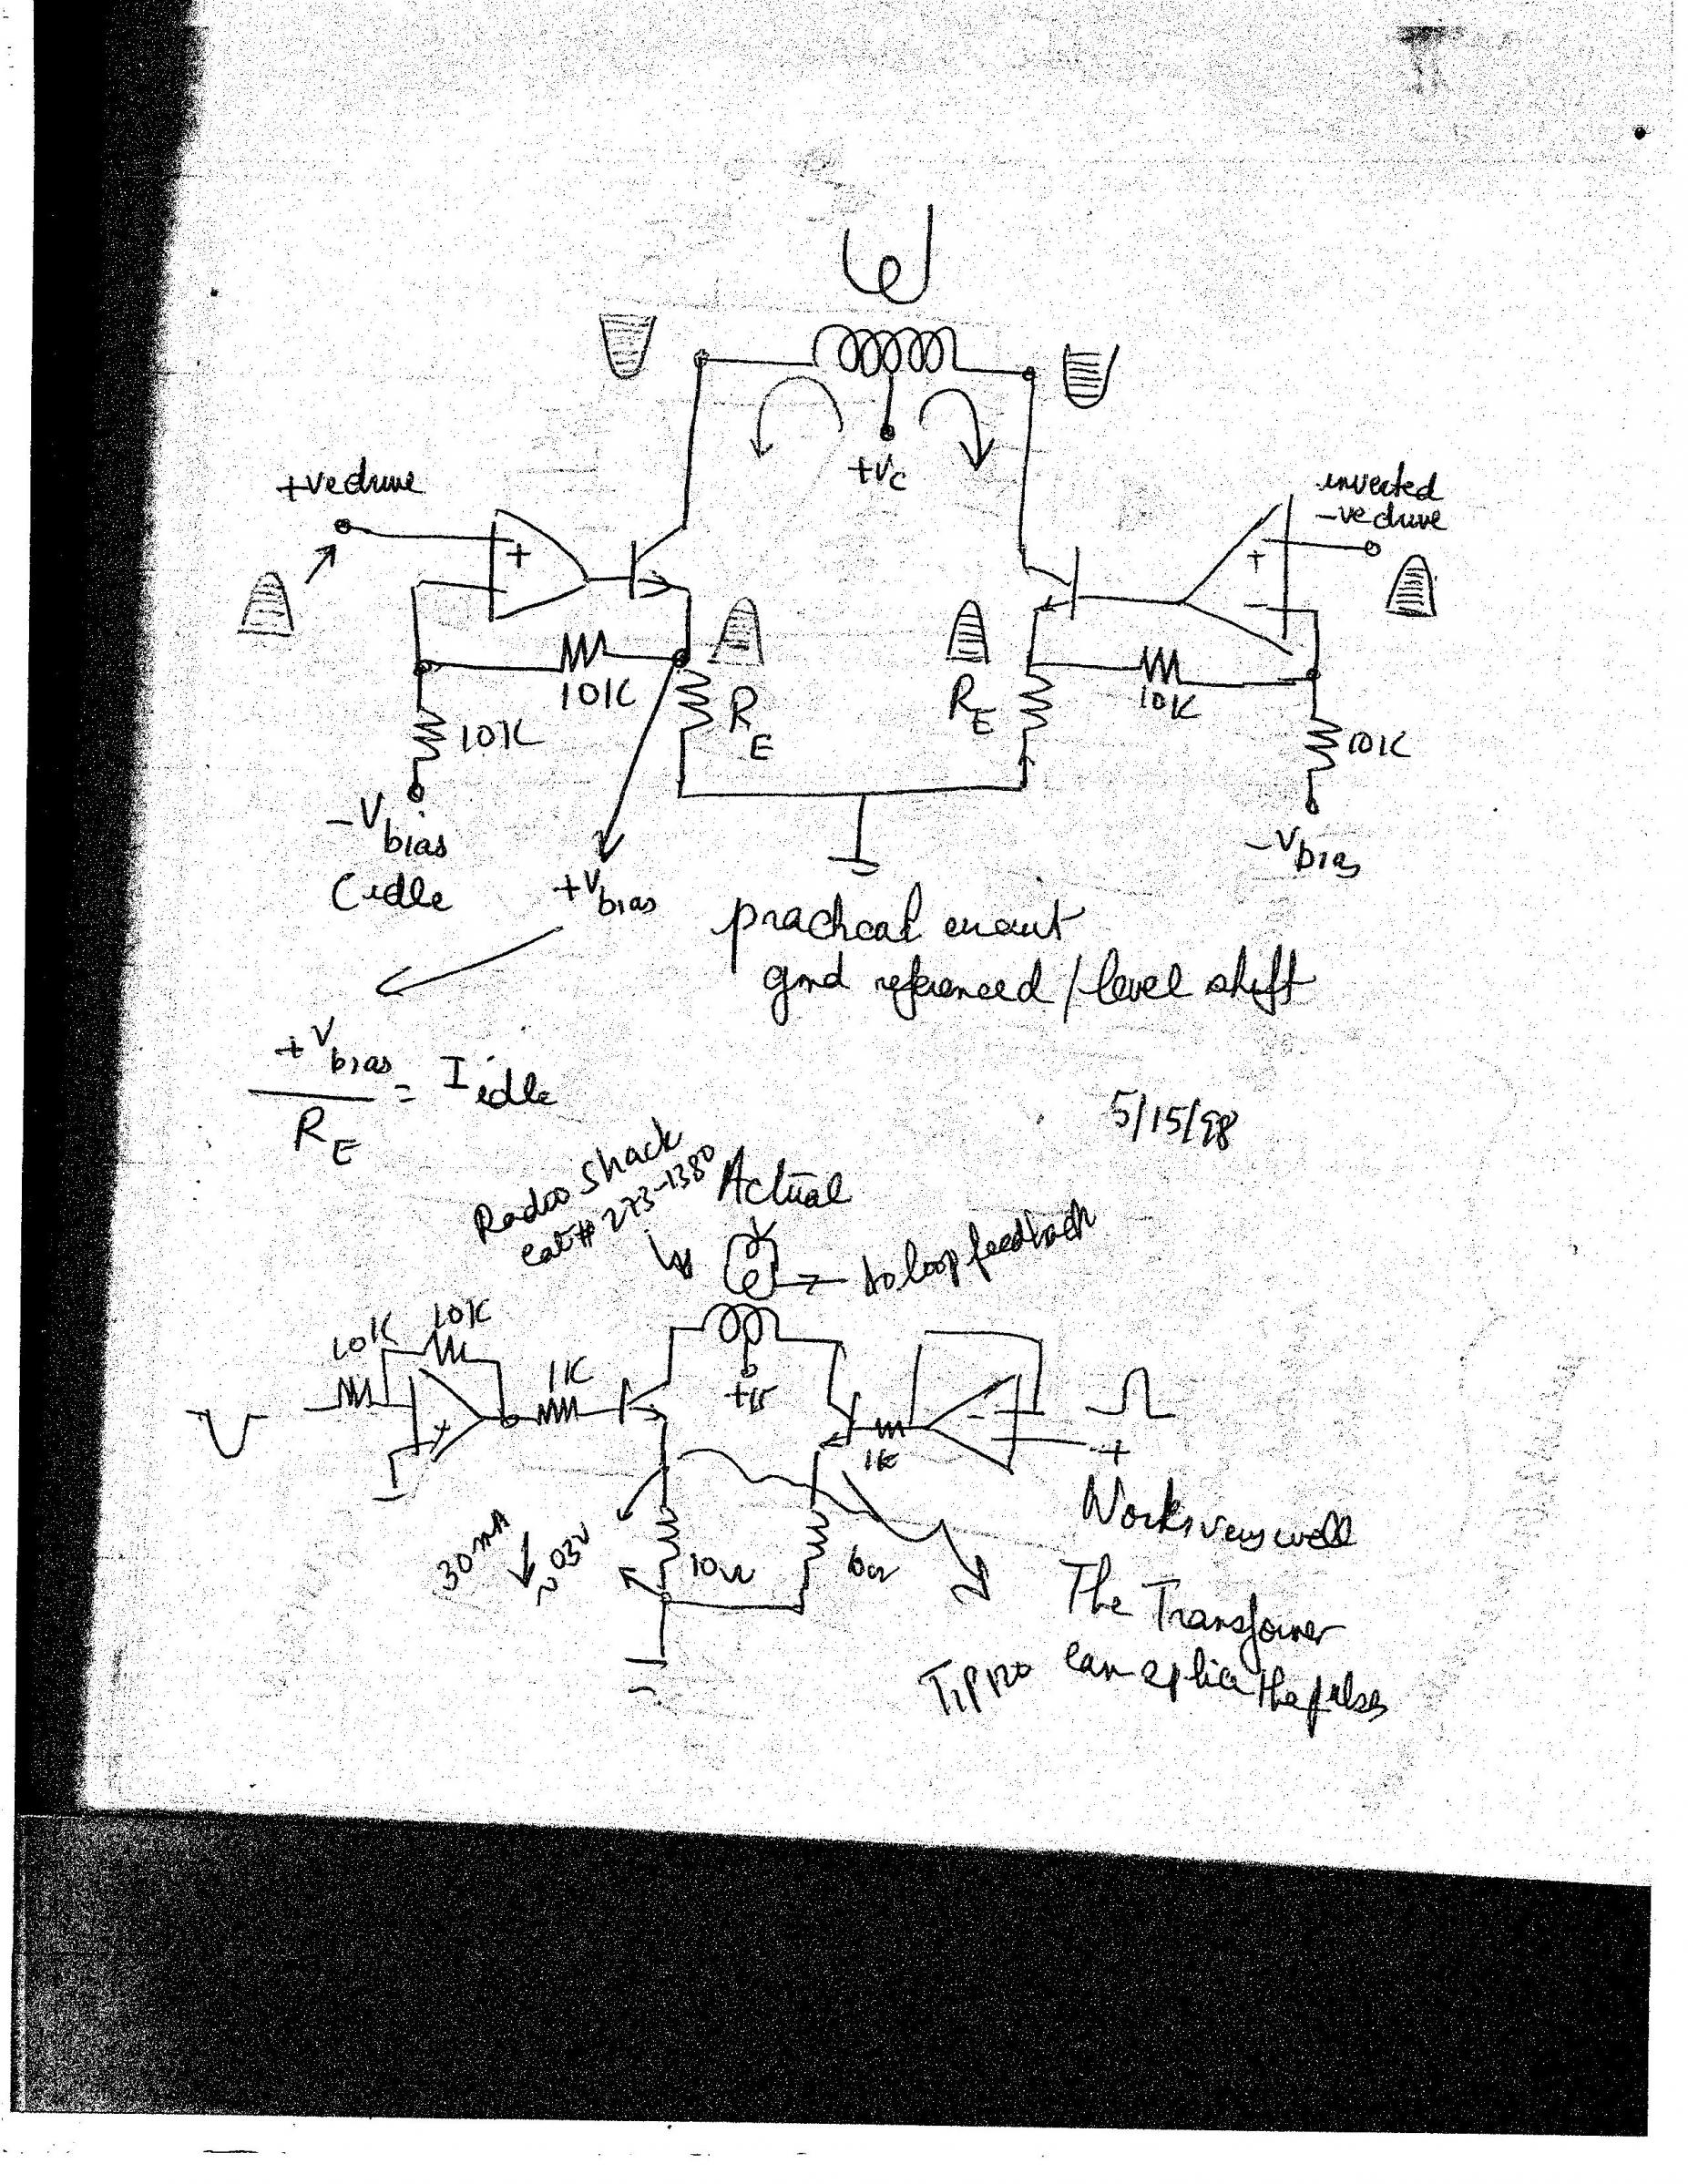 +VC
+ve drive
inverted
-ve drive
+
-
+
-
10K
RE
RE
10K
10K
10K
-Vbias
Cidle
+Vbias
-Vbias
practical circuit
gnd referenced / level shift
+Vbias
RE
= Iidle
5/15/98
Radio Shack
cat# 273-1380
Actual
to loop feedback
10K
10K
1K
+V
-
+
1K
+
30mA
~03V
10Ω
Works very well
The Transformer
can splice the pulses
TIP120